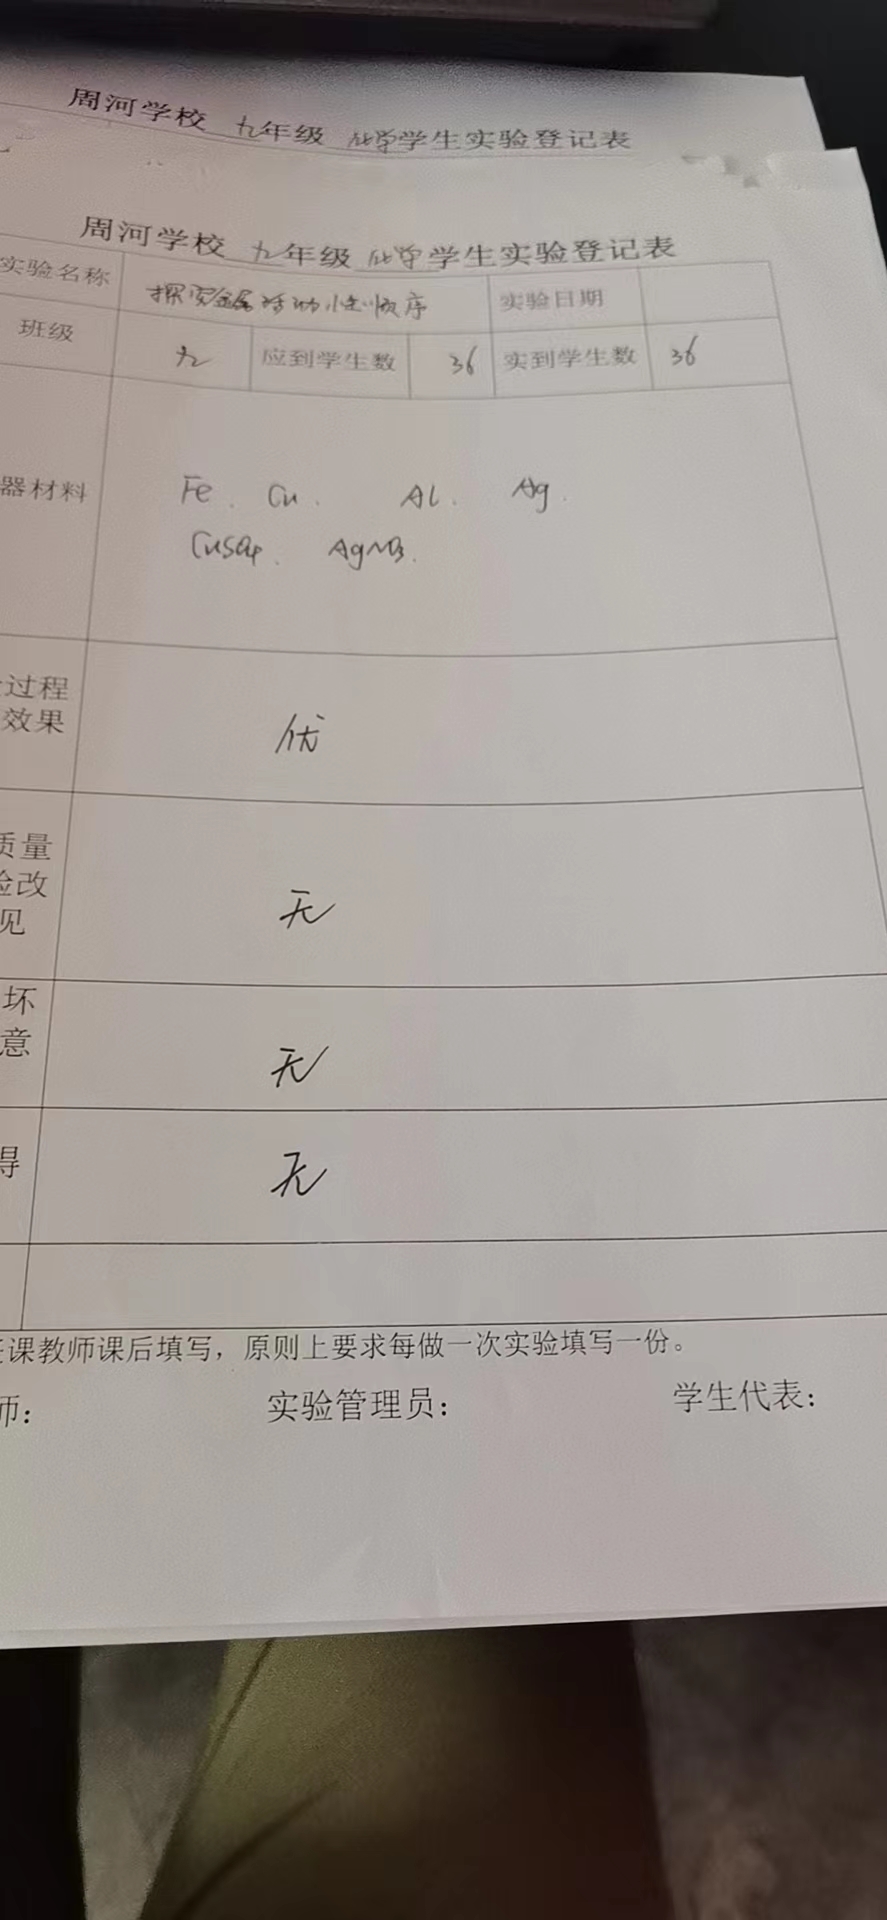 周河学校 九年级 化学学生实验登记表
周河学校 九年级 化学学生实验登记表
实验名称 探究金属活动性顺序 实验日期
班级 九 应到学生数 36 实到学生数 36
器材料 Fe、Cu、Al、Ag.
CuSO4、AgNO3.
过程
效果 优
质量
验改
见 无
坏
意 无
得 无
任课教师课后填写，原则上要求每做一次实验填写一份。
师： 实验管理员： 学生代表：